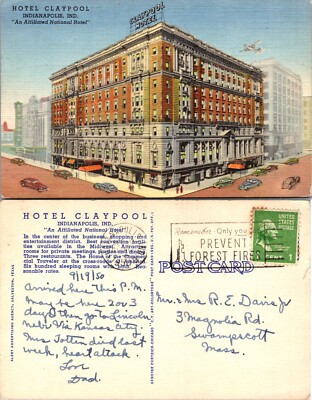 HOTEL CLAYPOOL
INDIANAPOLIS, IND.
"An Affiliated National Hotel"
CLAYPOOL
HOTEL
HOTEL CLAYPOOL
INDIANAPOLIS, IND.
"An Affiliated National Hotel"
In the center of the business, shopping and
entertainment district. Best convention facilities
available in the Midwest.
rooms for private meetings
Three restaurants. The Home of the
Traveler at the cross-roads
Six hundred sleeping rooms with bath.
sonable rates.
Remember - Only you
PREVENT
FOREST FIRES
UNITED STATES
POSTAGE
1
POST CARD
9/19/50
Arrived here this P.M.
May be here 2 or 3
days then go to Lincoln
Nebr. Via Kansas City
Mrs Totten died last
week, heart attack.
Love
Dad.
Mr. & Mrs R. E. Davis Jr
3 Magnolia Rd.
Swampscott
Mass.